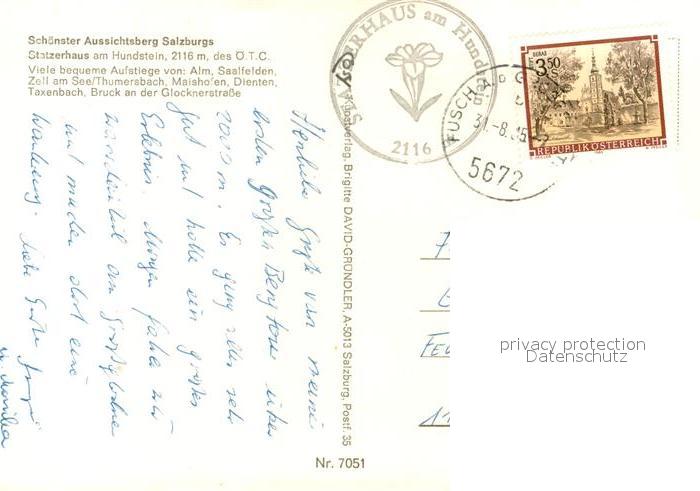 Schönster Aussichtsberg Salzburgs
Statzerhaus am Hundstein, 2116 m, des Ö.T.C.
Viele bequeme Aufstiege von: Alm, Saalfelden,
Zell am See/Thumersbach, Maishofen, Dienten,
Taxenbach, Bruck an der Glocknerstraße
STATZERHAUS am Hundstein
2116
FUSCH A D G
31.-8.85
5672
DOBRA
S 3.50
REPUBLIK ÖSTERREICH
Herzliche Grüße von meiner
ersten großen Bergtour über
2000 m. Es ging alles sehr
gut und hatte ein großes
Erlebnis. Morgen fahre wir
und machen dort eine
Wanderung. Liebe Grüße
u. Monika
Kunstverlag, Brigitte DAVID-GRÜNDLER, A-5013 Salzburg, Postf. 35
Nr. 7051
privacy protection
Datenschutz